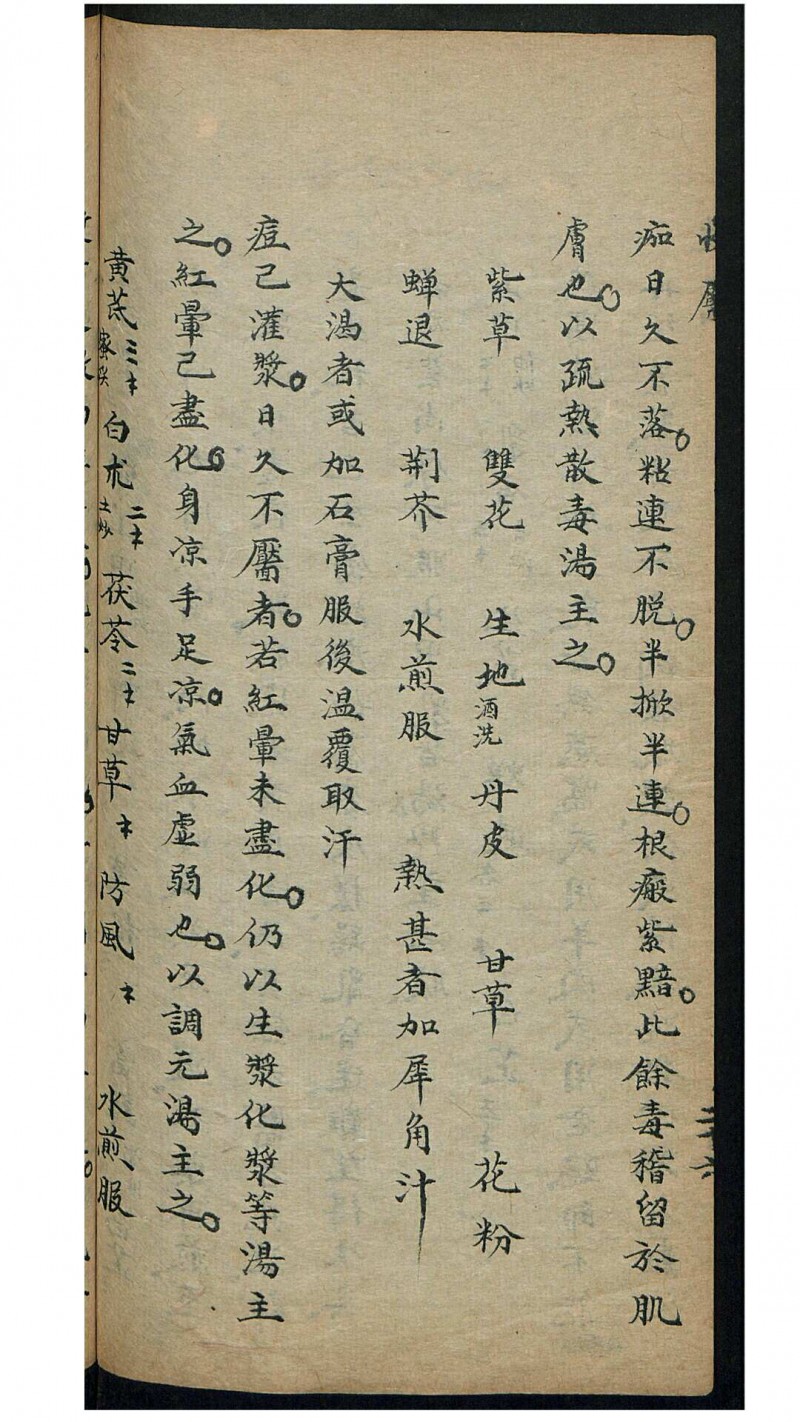 痂日久不落。粘連不脫。半掀半連。根瘢紫黯。此餘毒稽留於肌
膚也。以疏熱散毒湯主之。
紫草 雙花 生地酒洗 丹皮 甘草 花粉
蟬退 荆芥 水煎服 熱甚者加犀角汁
大渴者或加石膏服後温覆取汗
痘已灌漿。日久不靨者。若紅暈未盡化。仍以生漿化漿等湯主
之。紅暈已盡化。身凉手足凉。氣血虛弱也。以調元湯主之。
黄芪三十蜜炙 白朮二十土炒 茯苓二十 甘草十 防風十 水煎服